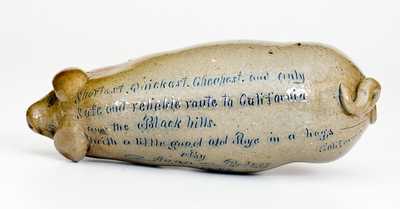 Shortest, Quickest, Cheapest, and only
Safe and reliable route to California
and the Black hills.
With a little good old Rye in a hogs
by